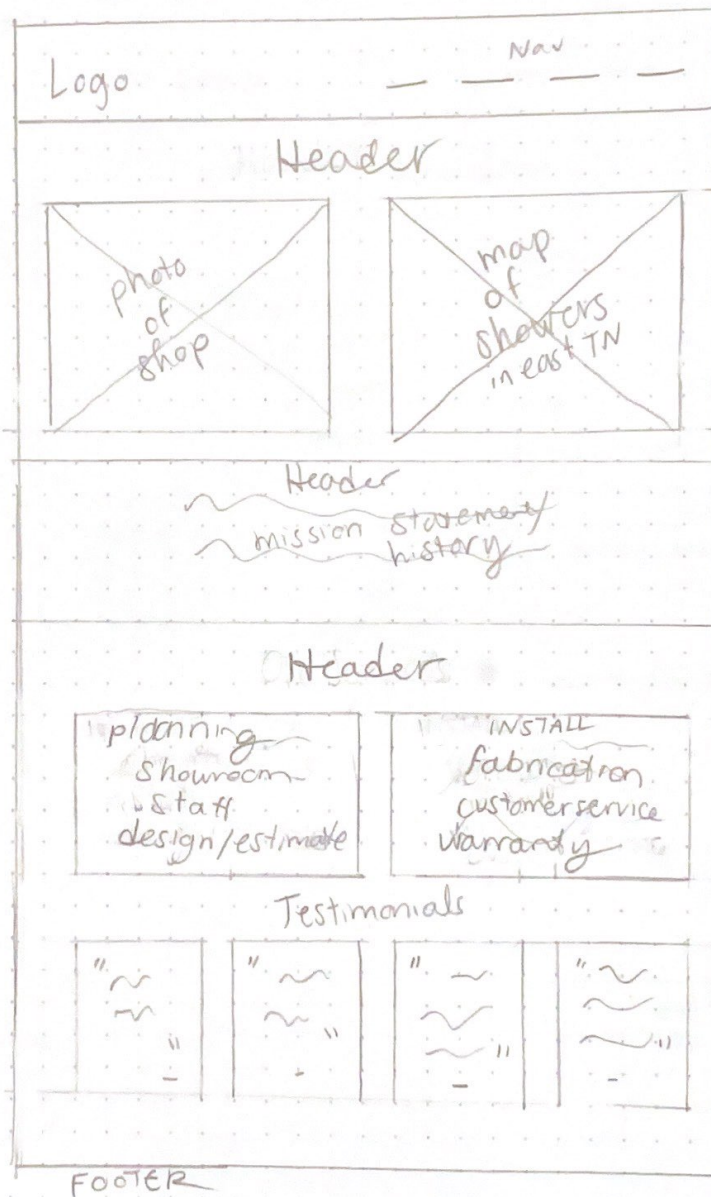 Logo
Nav
Header
photo
of
shop
map
of
showers
in east TN
Header
mission statement
history
Header
planning
showroom
staff
design/estimate
INSTALL
fabrication
customer service
warranty
Testimonials
" "
" "
" "
" "
FOOTER